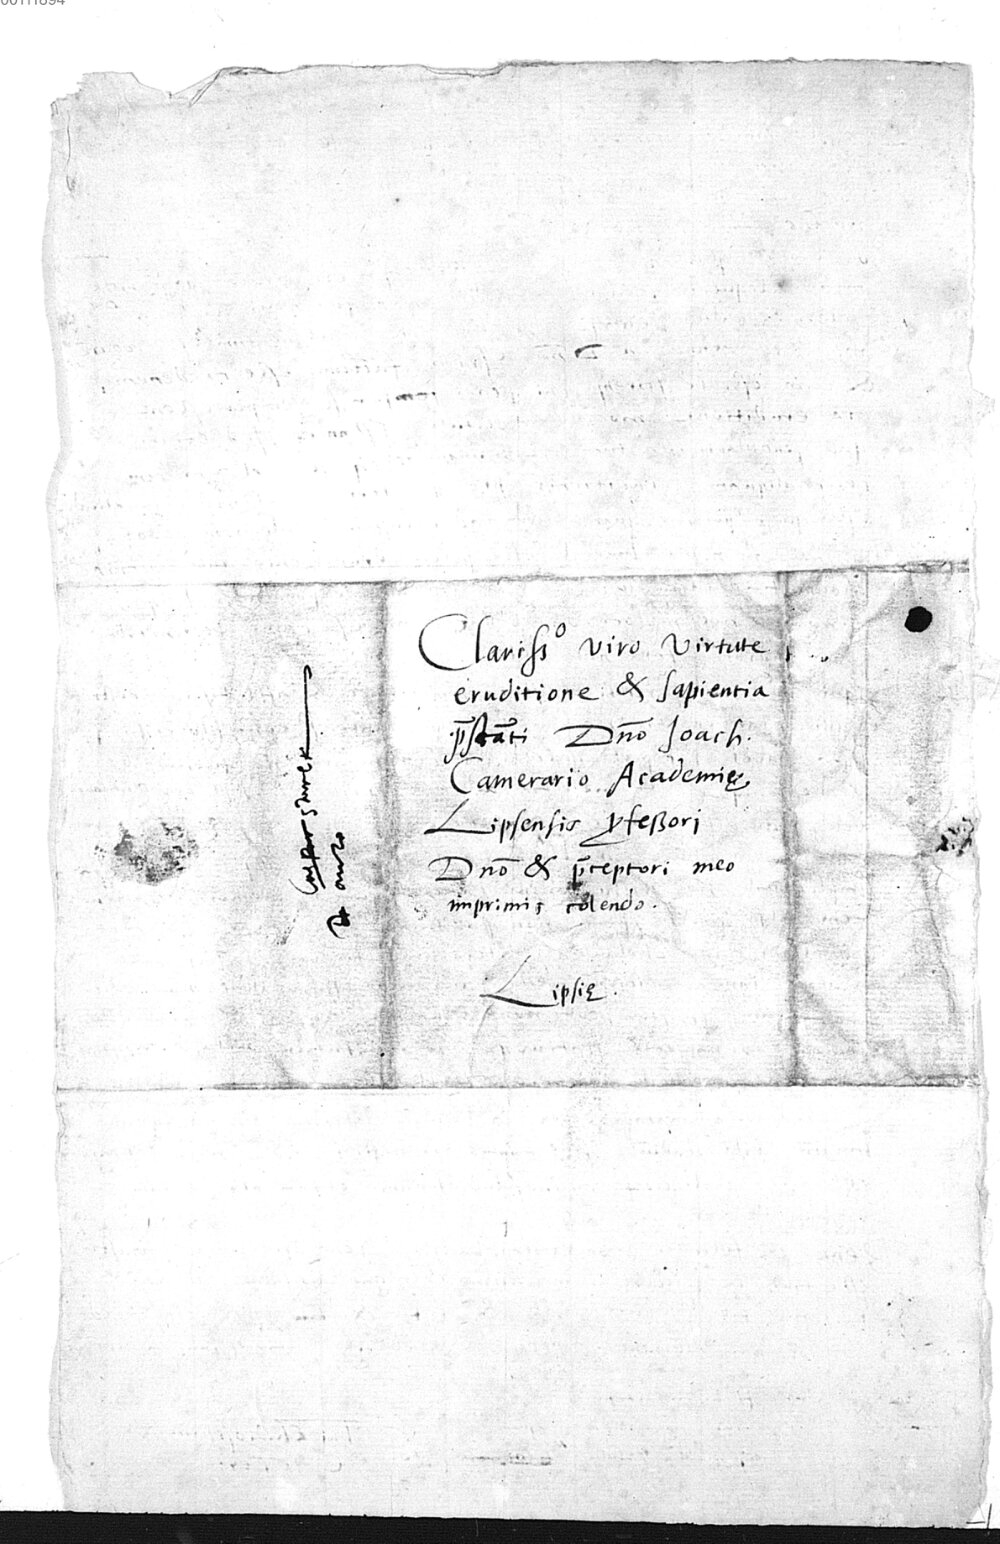 00111894
Clariss° viro virtute
eruditione & sapientia
p̄stāti Dn̄o Joach.
Camerario Academię
Lipsensis ꝓfeßori
Dn̄o & p̄ceptori meo
imprimis colendo.
Lipsię.